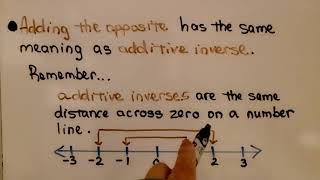 Adding the opposite has the same
meaning as additive inverse.
Remember...
additive inverses are the same
distance across zero on a number
line.
-3 -2 -1 0 2 3